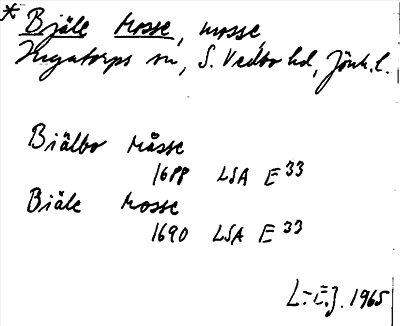 * Bjäle Mosse, mosse,
Ingatorps sn, S. Vedbo hd, Jönk. l.
Biälbo Måsse
1688 LSA E 33
Biäle Mosse
1690 LSA E 33
L.-E.J. 1965